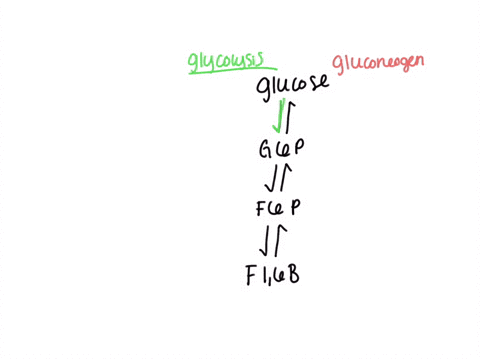 glycolysis gluconeogen
glucose
G6P
F6P
F1,6B